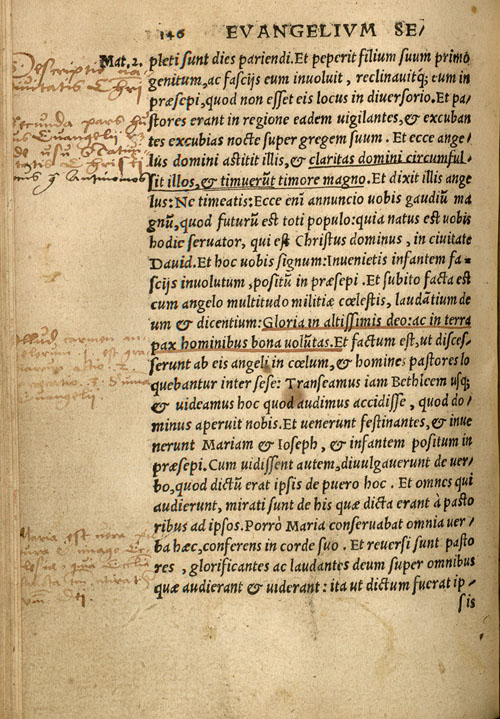 146 EVANGELIVM SE/
Mat. 2.
pleti sunt dies pariendi. Et peperit filium suum primo
genitum, ac fascijs eum inuoluit, reclinauitq; eum in
præsepi, quod non esset eis locus in diuersorio. Et pa/
stores erant in regione eadem uigilantes, & excuban
tes excubias nocte super gregem suum. Et ecce ange/
lus domini astitit illis, & claritas domini circumful/
sit illos, & timuerūt timore magno. Et dixit illis ange
lus: Ne timeatis: Ecce enī annuncio uobis gaudiū ma
gnū, quod futurū est toti populo: quia natus est uobis
hodie seruator, qui est Christus dominus, in ciuitate
Dauid. Et hoc uobis signum: Inuenietis infantem fa/
scijs inuolutum, positū in præsepi. Et subito facta est
cum angelo multitudo militiæ cœlestis, laudātium de
um & dicentium: Gloria in altissimis deo: ac in terra
pax hominibus bona uolūtas. Et factum est, ut disces/
serunt ab eis angeli in cœlum, & homines pastores lo
quebantur inter sese: Transeamus iam Bethleem usq;
& uideamus hoc quod audimus accidisse, quod do/
minus aperuit nobis. Et uenerunt festinantes, & inue
nerunt Mariam & Ioseph, & infantem positum in
præsepi. Cum uidissent autem, diuulgauerunt de uer/
bo, quod dictū erat ipsis de puero hoc. Et omnes qui
audierunt, mirati sunt de his quæ dicta erant à pasto
ribus ad ipsos. Porrò Maria conseruabat omnia uer/
ba hæc, conferens in corde suo. Et reuersi sunt pasto
res, glorificantes ac laudantes deum super omnibus
quæ audierant & uiderant: ita ut dictum fuerat ip/
sis